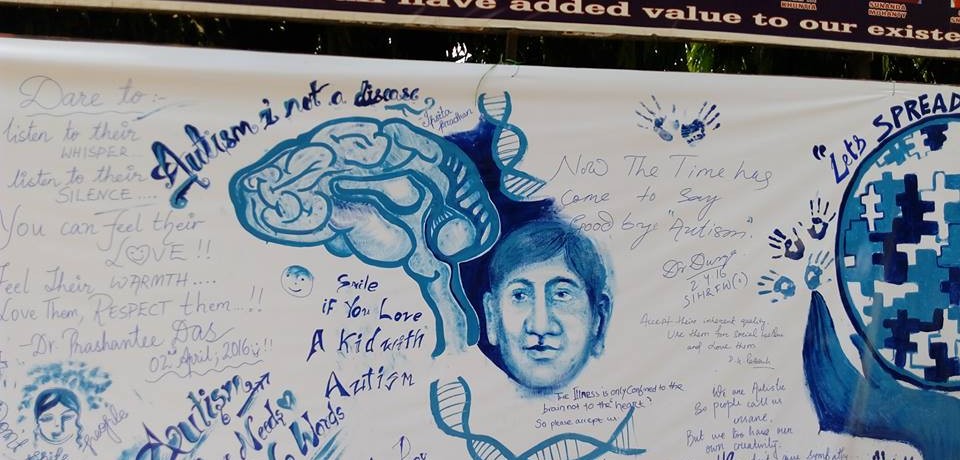 have added value to our existe
KHUNTIA
SUNANDA
MOHANTY
Dare to:-
listen to their
WHISPER...
listen to their
SILENCE....
You can Feel their
LOVE!!
Feel Their WARMTH....
Love Them, RESPECT them...!!
-Dr. Prashantee Das
02nd April, 2016!!
Autism is not a disease
Smile
if You Love
A Kid with
Autism
Autism
Needs
Words
people
Now The Time has
come to Say
Good bye "Autism".
Dr. Durga
2.4.16
SIH&FW(O)
Accept their inherent quality
Use them for Social
and Love them
The Illness is only confined to the
brain not to the "heart"
So please accept us
We are Autistic
So people call us
insane.
But we too have our
own creativity.
"Let's SPREAD